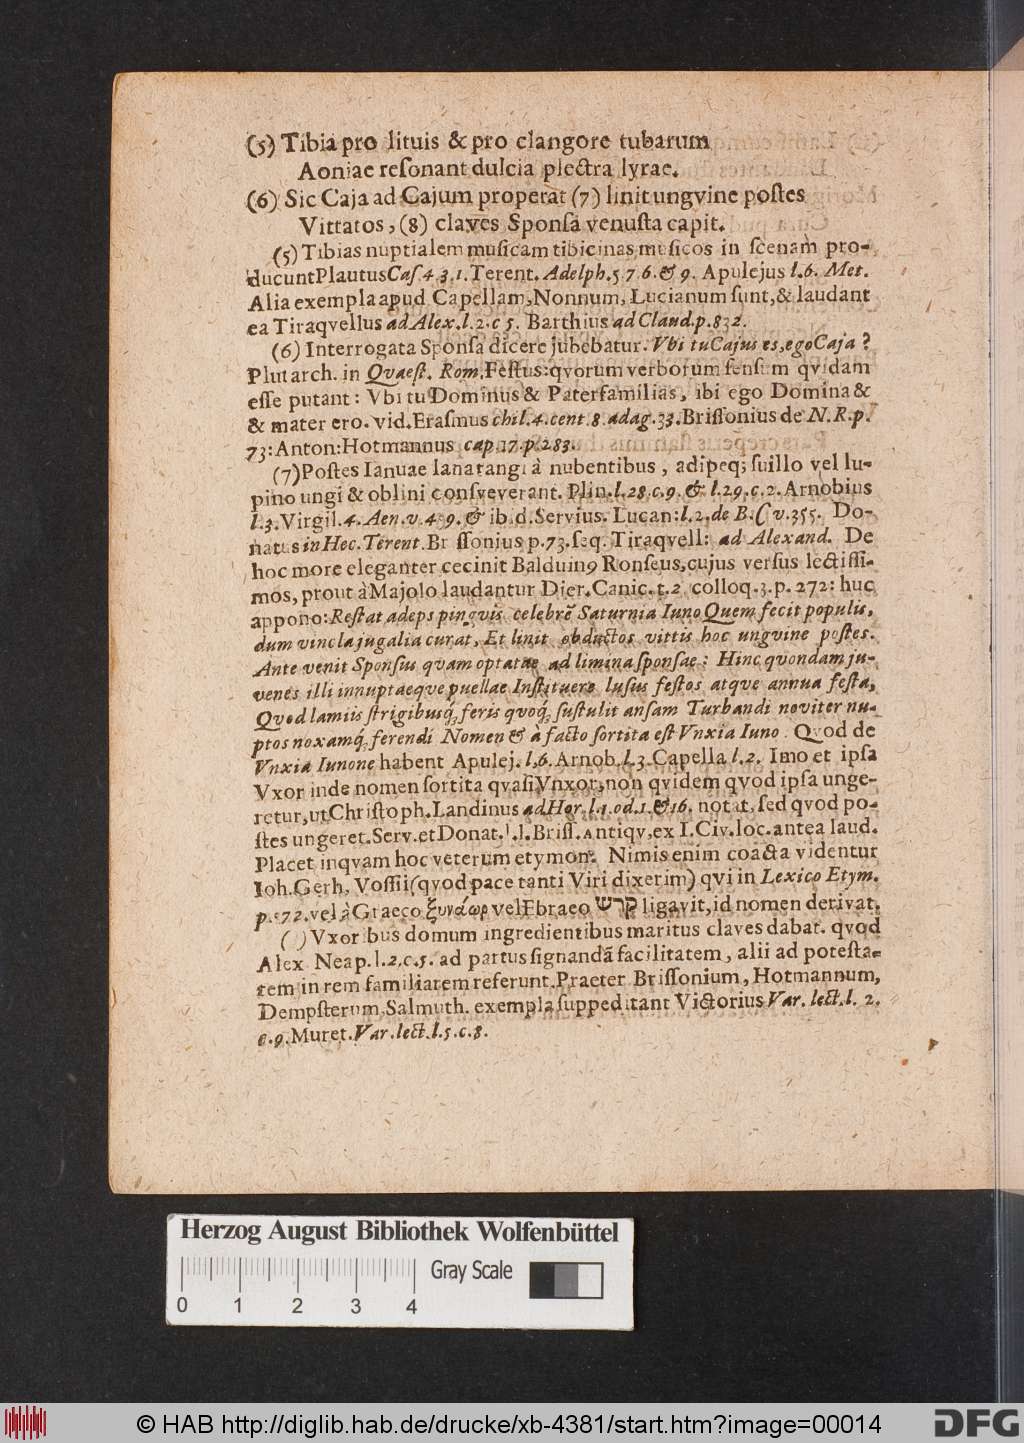 (5) Tibia pro lituis & pro clangore tubarum
Aoniae reſonant dulcia plectra lyrae.
(6) Sic Caja ad Cajum properat (7) linit ungvine poſtes
Vittatos, (8) claves Sponſa venuſta capit.
(5) Tibias nuptialem muſicam tibicinas muſicos in ſcenam pro-
ducunt Plautus Caſ. 4. 3. 1. Terent. Adelph. 5 7 6. & 9. Apulejus l. 6. Met.
Alia exempla apud Capellam, Nonnum, Lucianum ſunt, & laudant
ea Tiraqvellus ad Alex. l. 2. c 5. Barthius ad Claud. p. 832.
(6) Interrogata Sponſa dicere jubebatur. Vbi tu Cajus es, ego Caja ?
Plutarch. in Qvaeſt. Rom. Feſtus: qvorum verborum ſenſum qvidam
eſſe putant : Vbi tu Dominus & Paterfamilias, ibi ego Domina &
& mater ero. vid. Eraſmus chil. 4. cent. 8. adag. 33. Briſſonius de N. R. p.
73: Anton: Hotmannus cap. 17. p. 283.
(7) Poſtes Ianuae lana tangi à nubentibus, adipeq; ſuillo vel lu-
pino ungi & oblini conſveverant. Plin. l. 28. c. 9. & l. 29. c. 2. Arnobius
l. 3. Virgil. 4. Aen. v. 4 9. & ibid. Servius. Lucan: l. 2. de B. C v. 355. Do-
natus in Hec. Terent. Br ſſonius p. 73. ſeq. Tiraqvell: ad Alexand. De
hoc more eleganter cecinit Balduin9 Ronſeus, cujus verſus lectiſſi-
mos, prout à Majolo laudantur Dier. Canic. t. 2 colloq. 3. p. 272: huc
appono: Reſtat adeps pingvis celebrē Saturnia Iuno Quem fecit populis,
dum vincla jugalia curat, Et linit obductos vittis hoc ungvine poſtes.
Ante venit Sponſus qvam optatae ad limina ſponſae : Hinc qvondam ju-
venes illi innuptaeqve puellae Inſtituere luſus feſtos atqve annua feſta,
Quod lamiis ſtrigibusq́; feris quoq́; ſuſtulit anſam Turbandi noviter nu-
ptos noxamq́; ferendi Nomen & à facto ſortita eſt Vnxia Iuno. Quod de
Vnxia Iunone habent Apulej. l, 6. Arnob. l. 3. Capella l. 2. Imo et ipſa
Vxor inde nomen ſortita qvaſi Vnxor, non qvidem qvod ipſa unge-
retur, ut Chriſtoph. Landinus ad Hor. l. 1. od. 1. & 16. notat, ſed qvod po-
ſtes ungeret. Serv. et Donat. l. l. Briſſ. Antiqv, ex I. Civ. loc. antea laud.
Placet inqvam hoc veterum etymon. Nimis enim coacta videntur
Ioh. Gerh. Voſſii (qvod pace tanti Viri dixerim) qvi in Lexico Etym.
p. 572. vel à Graeco ξυνάωρ vel Ebraeo קרש ligavit, id nomen derivat.
( ) Vxoribus domum ingredientibus maritus claves dabat. qvod
Alex Neap. l. 2. c. 5. ad partus ſignandā facilitatem, alii ad poteſta-
tem in rem familiarem referunt. Praeter Briſſonium, Hotmannum,
Dempſterum, Salmuth. exempla ſuppeditant Victorius Var. lect. l. 2.
c. 9. Muret. Var. lect. l. 5. c. 8.
Herzog August Bibliothek Wolfenbüttel
Gray Scale
0 1 2 3 4
© HAB http://diglib.hab.de/drucke/xb-4381/start.htm?image=00014
DFG